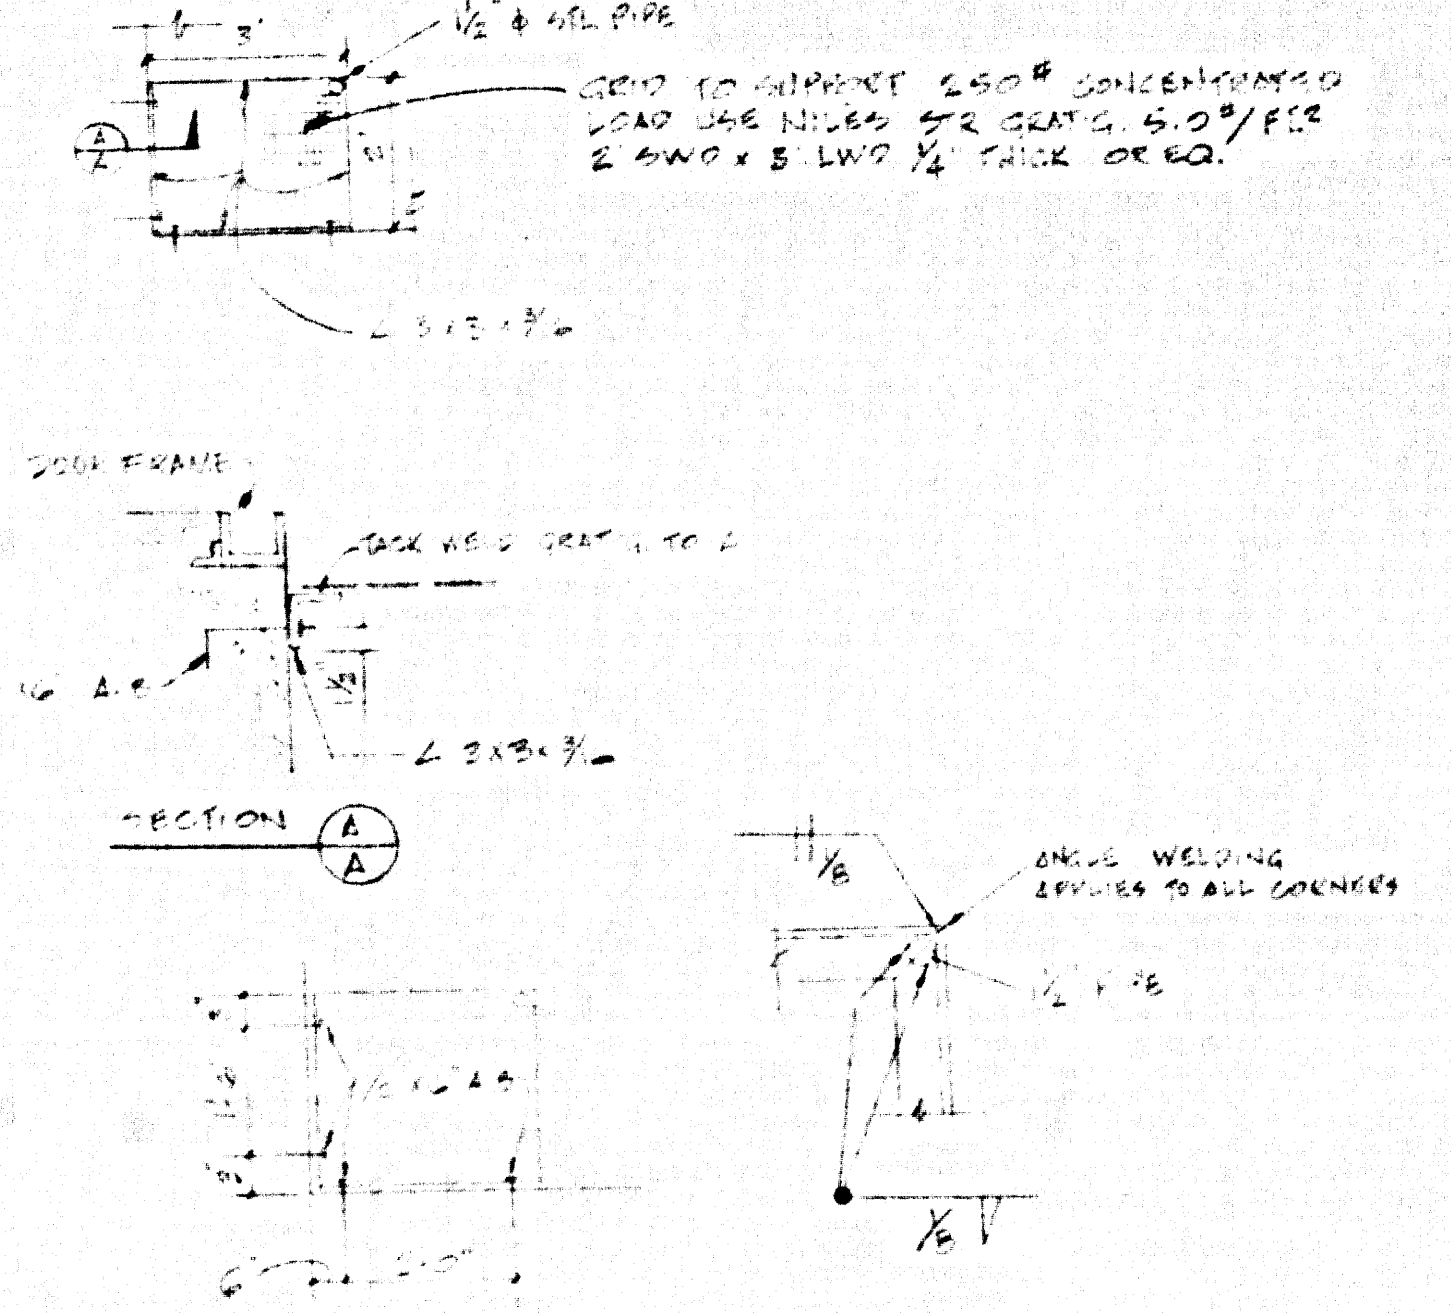 3'
1/2" φ STL PIPE
GRID TO SUPPORT 250# CONCENTRATED
LOAD USE NILES STR GRAT'G. 5.0#/FT2
2" SWD x 3" LWD 1/4" THICK OR EQ.
A
∠ 3 x 3 x 3/16
DOOR FRAME
TACK WELD GRAT'G. TO ∠
A.B
1 1/2
∠ 3x3x 3/16
SECTION A
A
1/8
ANGLE WELDING
APPLIES TO ALL CORNERS
1/2" PIPE
1/2 x 6" A B
4
1/8
6" 2'-0"